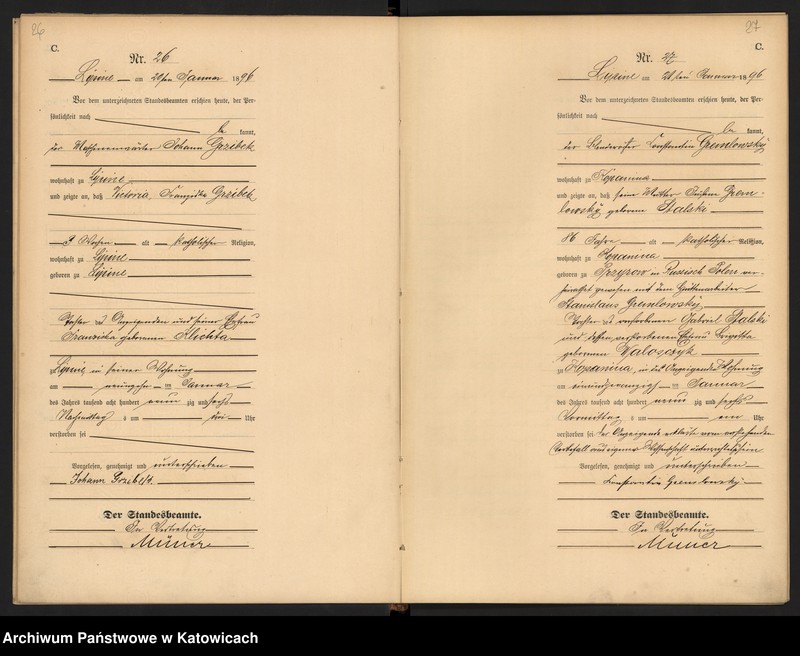 26
C.
Nr. 26
Lipine am 20ten Januar 1896
Vor dem unterzeichneten Standesbeamten erschien heute, der Per-
sönlichkeit nach
be kannt,
der Johann Grzibek
wohnhaft zu Lipine
und zeigte an, daß Victoria, Franziska Grzibek
3 Wochen alt katholischer Religion,
wohnhaft zu Lipine
geboren zu Lipine
Tochter des Anzeigenden und seiner Ehefrau
Franziska geborenen Klichta
zu Lipine in seiner Wohnung
am neunzehn ten Januar
des Jahres tausend acht hundert neun zig und sechs
Nachmittag s um drei Uhr
verstorben sei
Vorgelesen, genehmigt und unterschrieben
Johann Grzibek
Der Standesbeamte.
In Vertretung
27
C.
Nr. 27
Lipine am 21ten Januar 1896
Vor dem unterzeichneten Standesbeamten erschien heute, der Per-
sönlichkeit nach
be kannt,
der Constantin Gremlowsky
wohnhaft zu Kopanina
und zeigte an, daß seine Mutter Grem-
lowsky geborene Stalski
86 Jahre alt katholischer Religion,
wohnhaft zu Kopanina
geboren zu in Russisch Polen ver-
heirathet gewesen mit dem Hüttenarbeiter
Stanislaus Gremlowsky,
Tochter des verstorbenen Gabriel Stalski
und dessen verstorbenen Ehefrau
geborenen
zu Kopanina, in des Anzeigenden Wohnung
am einundzwanzig ten Januar
des Jahres tausend acht hundert neun zig und sechs
Vormittag s um ein Uhr
verstorben sei. Der Anzeigende erklärte vom vorstehenden
Sterbefall aus eigener Wissenschaft unterrichtet zu sein
Vorgelesen, genehmigt und unterschrieben
Constantin Gremlowsky
Der Standesbeamte.
In Vertretung
Archiwum Państwowe w Katowicach